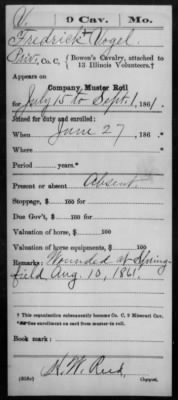 V. 9 Cav. Mo.
Fredrick Vogel
Priv., Co. C, { Bowen's Cavalry, attached to
13 Illinois Volunteers.†
Appears on
Company Muster Roll
for July 15 to Sept. 1, 1861.
Joined for duty and enrolled:
When June 27, 186 .
Where
Period years.*
Present or absent Absent.
Stoppage, $ 100 for
Due Gov't, $ 100 for
Valuation of horse, $ 100
Valuation of horse equipments, $ 100
Remarks: Wounded at Spring-
field, Aug. 10, 1861.
† This organization subsequently became Co. C, 9 Missouri Cav.
*See enrollment on card from muster-in roll.
Book mark:
Copyist.